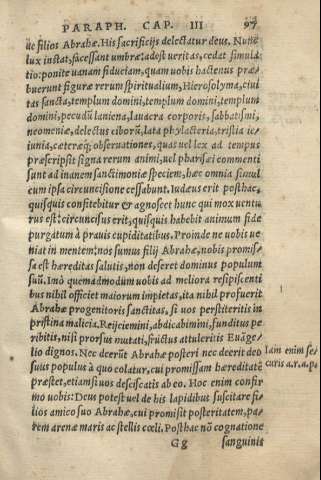 PARAPH. CAP. III 97
ũc filios Abrahæ. His sacrificijs delectatur deus. Nunc
lux instat, facessant umbræ: adest veritas, cedat simula-
tio: ponite uanam fiduciam, quam uobis hactenus præ-
buerunt figuræ rerum spiritualium, Hierosolyma, ciui
tas sancta, templum domini, templum domini, templum
domini, pecudũ laniena, lauacra corporis, sabbatismi,
neomeniæ, delectus ciborũ, lata phylacteria, tristia ie-
iunia, cæteræq; obseruationes, quas uel lex ad tempus
præscripsit signa rerum animi, uel pharisæi commenti
sunt ad inanem sanctimoniæ speciem, hæc omnia simul
cum ipsa circuncisione cessabunt. Iudæus erit posthac,
quisquis confitebitur & agnoscet hunc qui mox uentu
rus est: circuncisus erit, quisquis habebit animum fide
purgatũ à prauis cupiditatibus. Proinde ne uobis ue
niat in mentem: nos sumus filij Abrahæ, nobis promis-
sa est hæreditas salutis, non deseret dominus populum
suũ. Imò quemadmodum uobis ad meliora resipiscenti
bus nihil officiet maiorum impietas, ita nihil profuerit
Abrahæ progenitoris sanctitas, si uos perstiteritis in
pristina malicia. Reijciemini, abdicabimini, funditus pe
ribitis, nisi prorsus mutati, fructus attuleritis Euãge-
lio dignos. Nec deerũt Abrahæ posteri nec deerit deo
suus populus à quo colatur, cui promissam hæreditatẽ
præstet, etiamsi uos desciscatis ab eo. Hoc enim confir
mo uobis: Deus potest uel de his lapidibus suscitare fi-
lios amico suo Abrahæ, cui promisit posteritatem, pa-
rem arenæ maris ac stellis cœli. Posthac nõ cognatione
Gg sanguinis
Iam enim se-
curis a.r.a.po